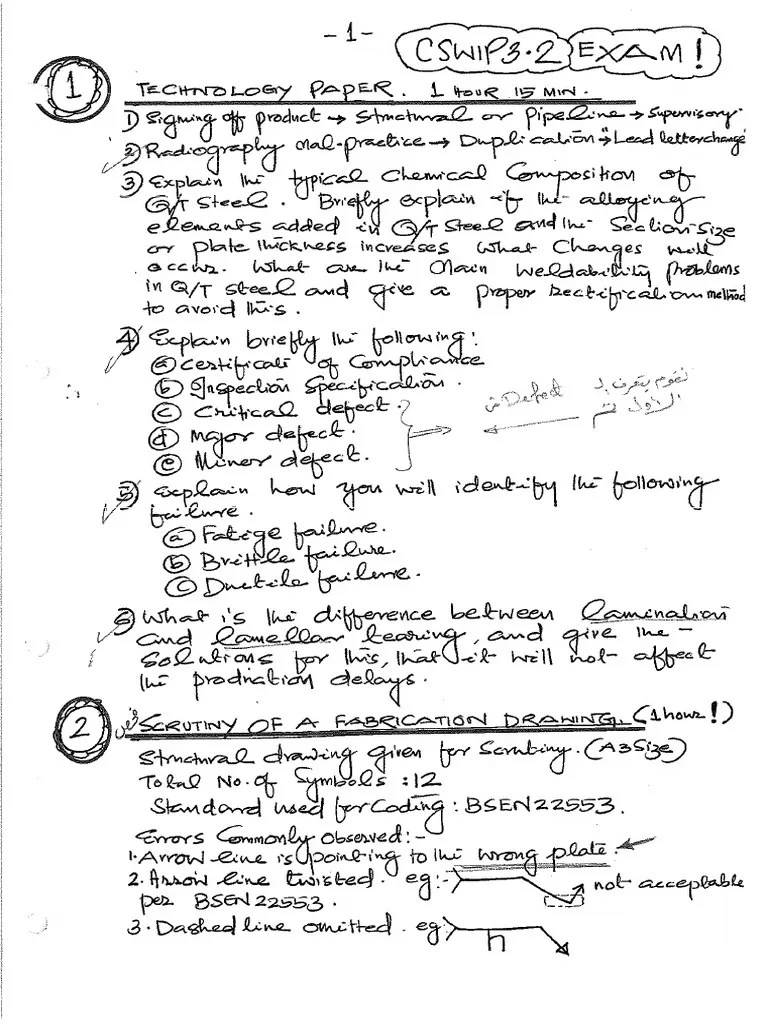 -1-
CSWIP3.2 EXAM!
1 TECHNOLOGY PAPER. 1 HOUR 15 MIN.
1) Signing off product → Structural or Pipeline → Supervisory.
2) Radiography mal-practice → Duplication → Lead letter change
3) Explain the typical Chemical Composition of
Q/T Steel. Briefly explain if the alloying
elements added in Q/T Steel and the Section Size
or plate thickness increases what Changes will
occur. What are the Main Weldability problems
in Q/T steel and give a proper rectification method
to avoid this.
4) Explain briefly the following:
a Certificate of Compliance
b Inspection Specification.
c Critical defect.
من Defect نقوم بتعرف
d Major defect.
الأول ثم
e Minor defect.
5) Explain how you will identify the following
failure.
a Fatige failure.
b Brittle failure.
c Ductile failure.
6) What is the difference between lamination
and lamellar tearing, and give the
solutions for this, that it will not affect
the prodn delays.
2 SCRUTINY OF A FABRICATION DRAWING. (1 hour!)
Structural drawing given for Scrutiny. (A3 Size)
Total No. of Symbols : 12
Standard used for Coding : BSEN 22553.
Errors Commonly observed:-
1. Arrow line is pointing to the wrong plate.
2. Arrow line twisted. eg:- not acceptable
per BSEN 22553.
3. Dashed line omitted. eg: